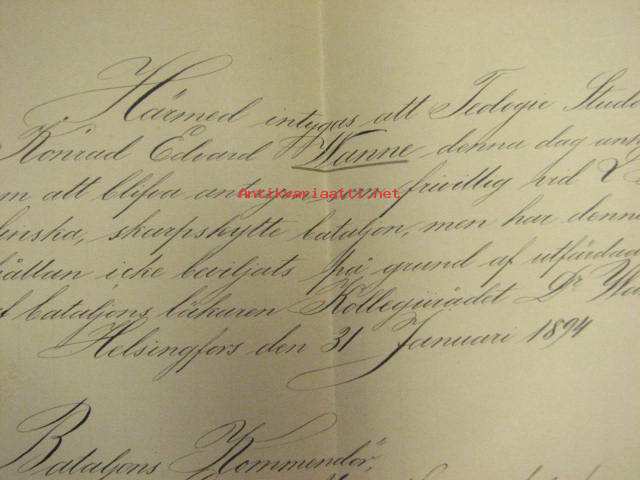 Härmed intygas att Teologie Stude
Konrad Edvard Wanne denna dag anh
m att blifva antagen som frivillig vid
Antikvariaatti.net
finska, skarpskytte bataljon, men har denna
hållan icke beviljats på grund af utfärdad
f bataljons läkaren Kollegiirådet Dr Wa
Helsingfors den 31 Januari 1894
Bataljons Kommendör,